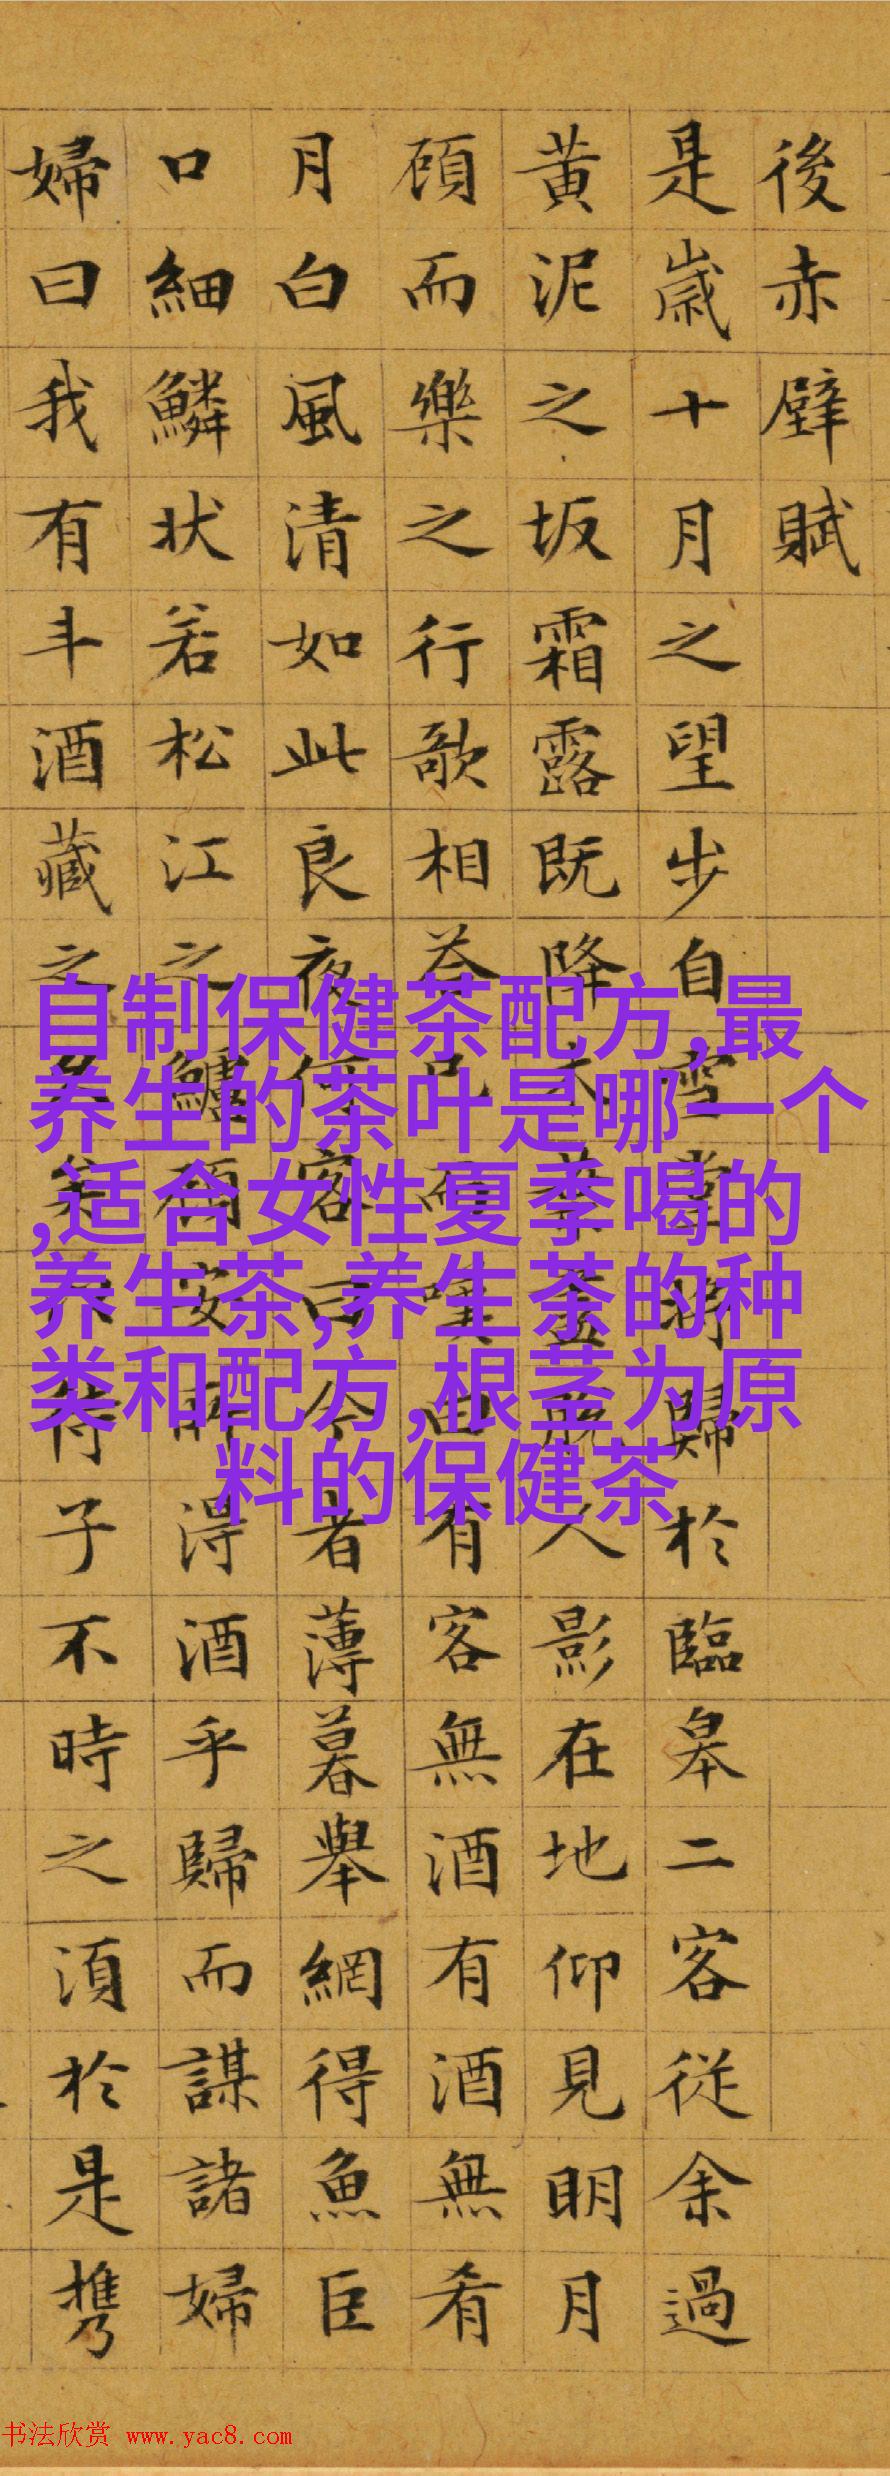 後赤壁賦
是歲十月之望步自雪堂將歸於臨皋二客從余過
黄泥之坂霜露既降木葉盡脫人影在地仰見明月
顧而樂之行歌相荅已而嘆曰有客無酒有酒無肴
月白風清如此良夜何客曰今者薄暮舉網得魚巨
口細鱗状若松江之鱸顧安所得酒乎歸而謀諸婦
婦曰我有斗酒藏之久矣以待子不時之須於是攜
自制保健茶配方,最
养生的茶叶是哪一个
,适合女性夏季喝的
养生茶,养生茶的种
类和配方,根茎为原
料的保健茶
书法欣赏 www.yac8.com